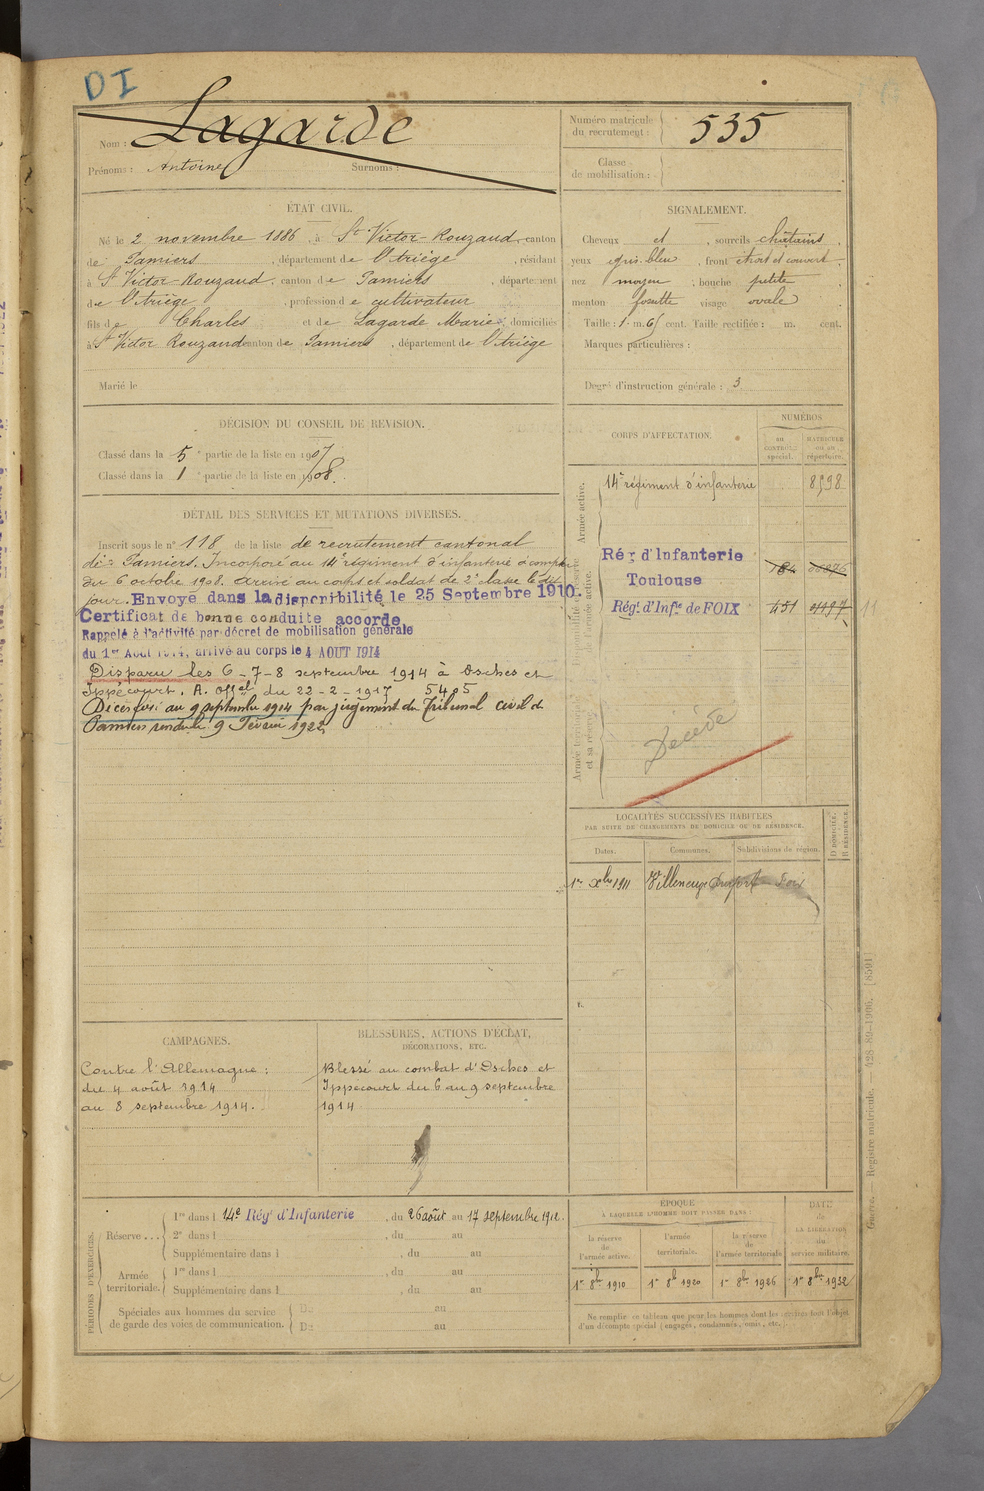 DI
Nom : Lagarde
Prénoms : Antoine Surnoms :
Numéro matricule du recrutement : 535
Classe de mobilisation :
ÉTAT CIVIL.
Né le 2 novembre 1886, à St Victor-Rouzaud, canton
de Pamiers, département de l'Ariège, résidant
à St Victor-Rouzaud, canton de Pamiers, département
de l'Ariège, profession de cultivateur
fils de Charles et de Lagarde Marie, domiciliés
à St Victor Rouzaud canton de Pamiers, département de l'Ariège
Marié le
SIGNALEMENT.
Cheveux et, sourcils châtains,
yeux gris-bleu, front étroit et couvert,
nez moyen, bouche petite
menton fossette visage ovale
Taille : 1 m. 61 cent. Taille rectifiée : m. cent.
Marques particulières :
Degré d'instruction générale : 3
DÉCISION DU CONSEIL DE REVISION.
Classé dans la 5e partie de la liste en 1907
Classé dans la 1e partie de la liste en 1908.
DÉTAIL DES SERVICES ET MUTATIONS DIVERSES.
Inscrit sous le n° 118 de la liste de recrutement cantonal
de Pamiers. Incorporé au 14e régiment d'infanterie à compter
du 6 octobre 1908. Arrivé au corps et soldat de 2e classe le dit
jour. Envoyé dans la disponibilité le 25 Septembre 1910.
Certificat de bonne conduite accordé
Rappelé à l'activité par décret de mobilisation générale
du 1er Août 1914, arrivé au corps le 4 AOUT 1914
Disparu les 6-7-8 septembre 1914 à Osches et
Ippécourt. A. Offel du 22-2-1917 5405
Décès fixé au 9 septembre 1914 par jugement du Tribunal civil de
Pamiers rendu le 9 Février 1922
CORPS D'AFFECTATION.
NUMÉROS
au CONTRÔLE spécial.
MATRICULE ou au répertoire.
Armée active.
14e régiment d'infanterie 8598
Disponibilité et réserve de l'armée active.
Rég. d'Infanterie
Toulouse
Régt. d'Infie de FOIX 451
11
Armée territoriale et sa réserve.
Décédé
LOCALITÉS SUCCESSIVES HABITÉES
PAR SUITE DE CHANGEMENTS DE DOMICILE OU DE RÉSIDENCE.
Dates. Communes. Subdivisions de région. D DOMICILE. R RÉSIDENCE.
1er Xbre 1911 Villeneuve Foix
CAMPAGNES.
Contre l'Allemagne :
du 4 août 1914
au 8 septembre 1914.
BLESSURES, ACTIONS D'ÉCLAT,
DÉCORATIONS, ETC.
Blessé au combat d'Osches et
Ippécourt du 6 au 9 septembre
1914
PÉRIODES D'EXERCICES.
Réserve ... 1re dans l 14e Rég. d'Infanterie, du 26 août au 17 septembre 1912.
2e dans l , du au
Supplémentaire dans l , du au
Armée territoriale. 1re dans l , du au
Supplémentaire dans l , du au
Spéciales aux hommes du service Du au
de garde des voies de communication. Du au
ÉPOQUE
À LAQUELLE L'HOMME DOIT PASSER DANS :
la réserve de l'armée active. l'armée territoriale. la réserve de l'armée territoriale
DATE de LA LIBÉRATION du service militaire.
1er 8bre 1910 1er 8b 1920 1er 8bre 1926 1er 8bre 1932
Ne remplir ce tableau que pour les hommes dont les services font l'objet
d'un décompte spécial (engagés, condamnés, omis, etc.).
Guerre. — Registre matricule. — 428-89-1906. [8591]